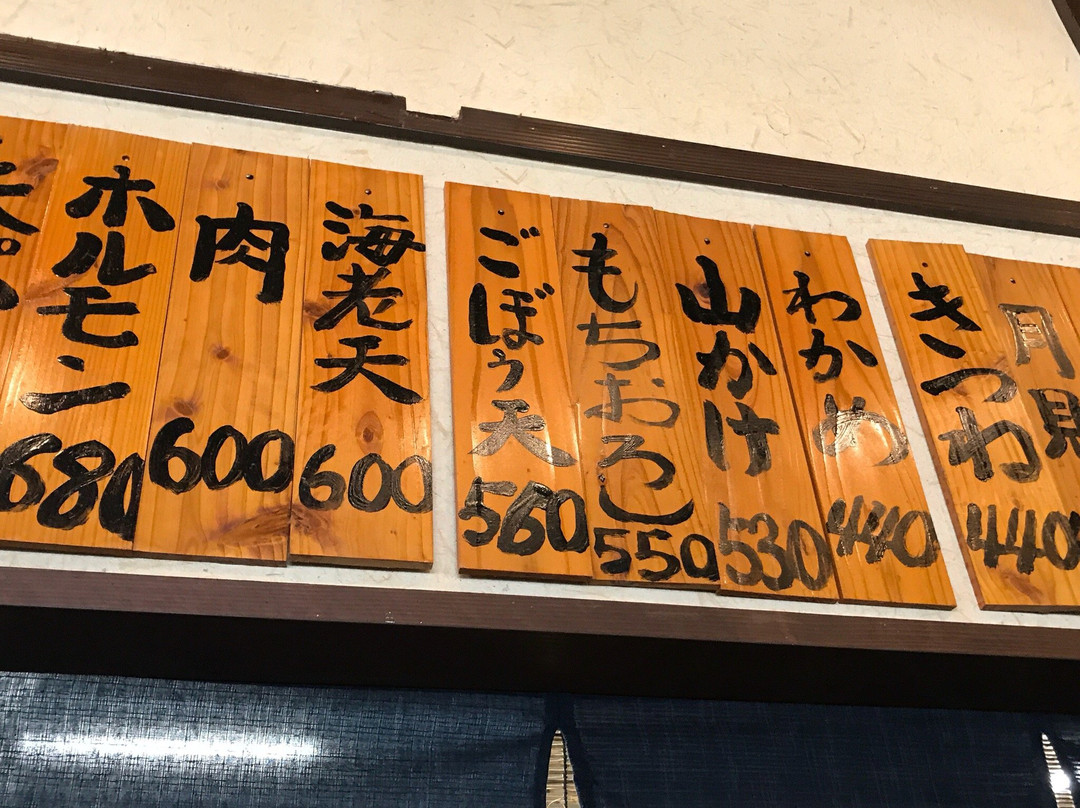 月見
きつね
440
わかめ
440
山かけ
530
もちおろし
550
ごぼう天
560
海老天
600
肉
600
ホルモン
680